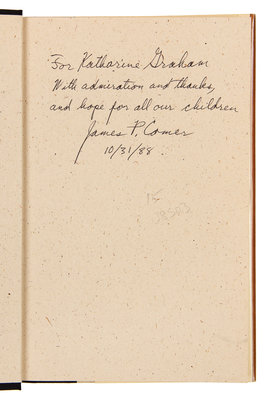 For Katharine Graham
With admiration and thanks,
and hope for all our children
James P. Comer
10/31/88